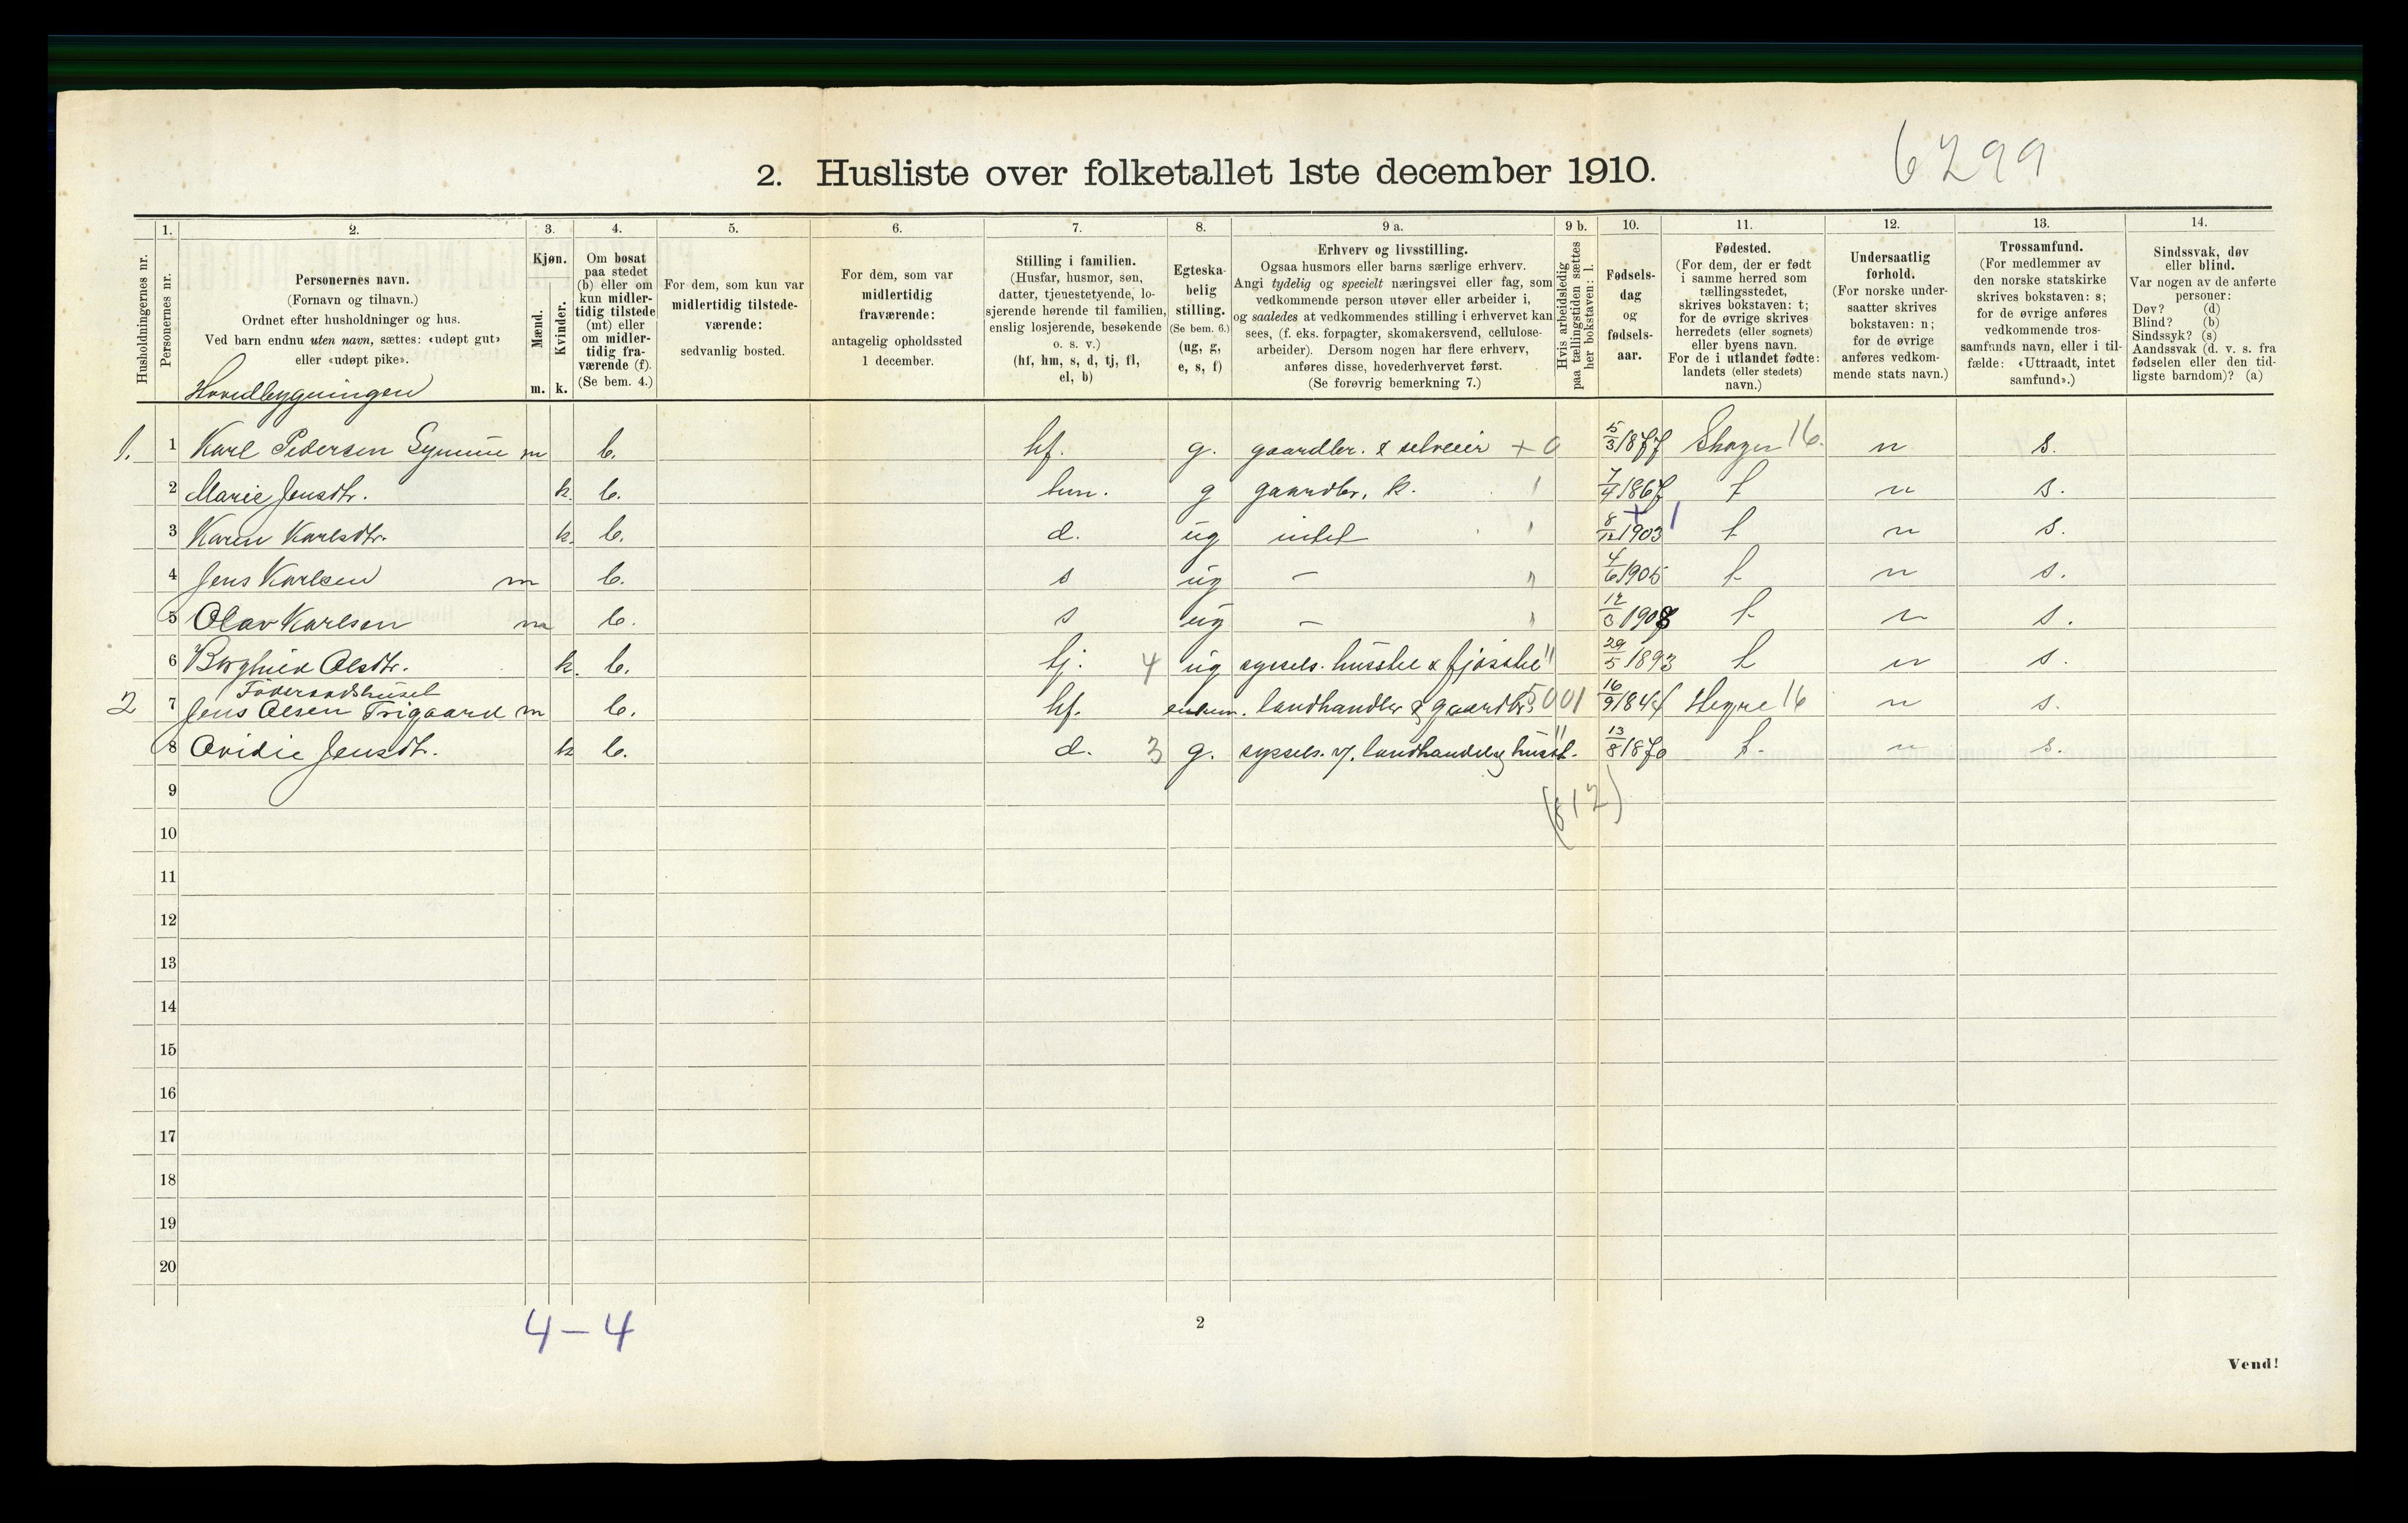 6299
2. Husliste over folketallet 1ste december 1910.
Husholdningernes nr.
1.
Personernes nr.
2.
Personernes navn.
(Fornavn og tilnavn.)
Ordnet efter husholdninger og hus.
Ved barn endnu uten navn, sættes: «udøpt gut»
eller «udøpt pike».
Hovedbygningen
3.
Kjøn.
Mænd.
m.
Kvinder.
k.
4.
Om bosat
paa stedet
(b) eller om
kun midler-
tidig tilstede
(mt) eller
om midler-
tidig fra-
værende (f).
(Se bem. 4.)
5.
For dem, som kun var
midlertidig tilstede-
værende:
sedvanlig bosted.
6.
For dem, som var
midlertidig
fraværende:
antagelig opholdssted
1 december.
7.
Stilling i familien.
(Husfar, husmor, søn,
datter, tjenestetyende, lo-
sjerende hørende til familien,
enslig losjerende, besøkende
o. s. v.)
(hf, hm, s, d, tj, fl,
el, b)
8.
Egteska-
belig
stilling.
(Se bem. 6.)
(ug, g,
e, s, f)
9 a.
Erhverv og livsstilling.
Ogsaa husmors eller barns særlige erhverv.
Angi tydelig og specielt næringsvei eller fag, som
vedkommende person utøver eller arbeider i,
og saaledes at vedkommendes stilling i erhvervet kan
sees, (f. eks. forpagter, skomakersvend, cellulose-
arbeider). Dersom nogen har flere erhverv,
anføres disse, hovederhvervet først.
(Se forøvrig bemerkning 7.)
9 b.
Hvis arbeidsledig
paa tællingstiden sættes
her bokstaven: l.
10.
Fødsels-
dag
og
fødsels-
aar.
11.
Fødested.
(For dem, der er født
i samme herred som
tællingsstedet,
skrives bokstaven: t;
for de øvrige skrives
herredets (eller sognets)
eller byens navn.
For de i utlandet fødte:
landets (eller stedets)
navn.)
12.
Undersaatlig
forhold.
(For norske under-
saatter skrives
bokstaven: n;
for de øvrige
anføres vedkom-
mende stats navn.)
13.
Trossamfund.
(For medlemmer av
den norske statskirke
skrives bokstaven: s;
for de øvrige anføres
vedkommende tros-
samfunds navn, eller i til-
fælde: «Uttraadt, intet
samfund».)
14.
Sindssvak, døv
eller blind.
Var nogen av de anførte
personer:
Døv? (d)
Blind? (b)
Sindssyk? (s)
Aandssvak (d. v. s. fra
fødselen eller den tid-
ligste barndom)? (a)
1. 1 Karl Pedersen m b. hf. g. gaardbr. & selveier + 0 5/3 1877 16. n s.
2 Marie Jensdtr. k. b. hm. g gaardbr. k. 7/4 1867 t n s.
3 Karen Karlsdtr. k. b. d. ug intet 8/12 1903 t n s.
4 Jens Karlsen m b. s ug – 4/6 1905 t n s.
5 Olav Karlsen m b. s ug – 12/3 1908 t n s.
6 Borghild Olsdtr. k. b. tj. 4 ug syssels. husstel & fjøsstel " 29/5 1893 t n s.
Föderaadshuset
2 7 Jens Olsen Trigaard m b. hf. enkem. landhandler & gaardbr. 5001 16/9 1844 Hegre 16 n s.
8 Ovidie Jensdtr. k b. d. 3 g. syssels. v/. landhandel & husst. 13/8 1870 t. n s.
9
10
11
12
13
14
15
16
17
18
19
20
4–4
2
Vend!